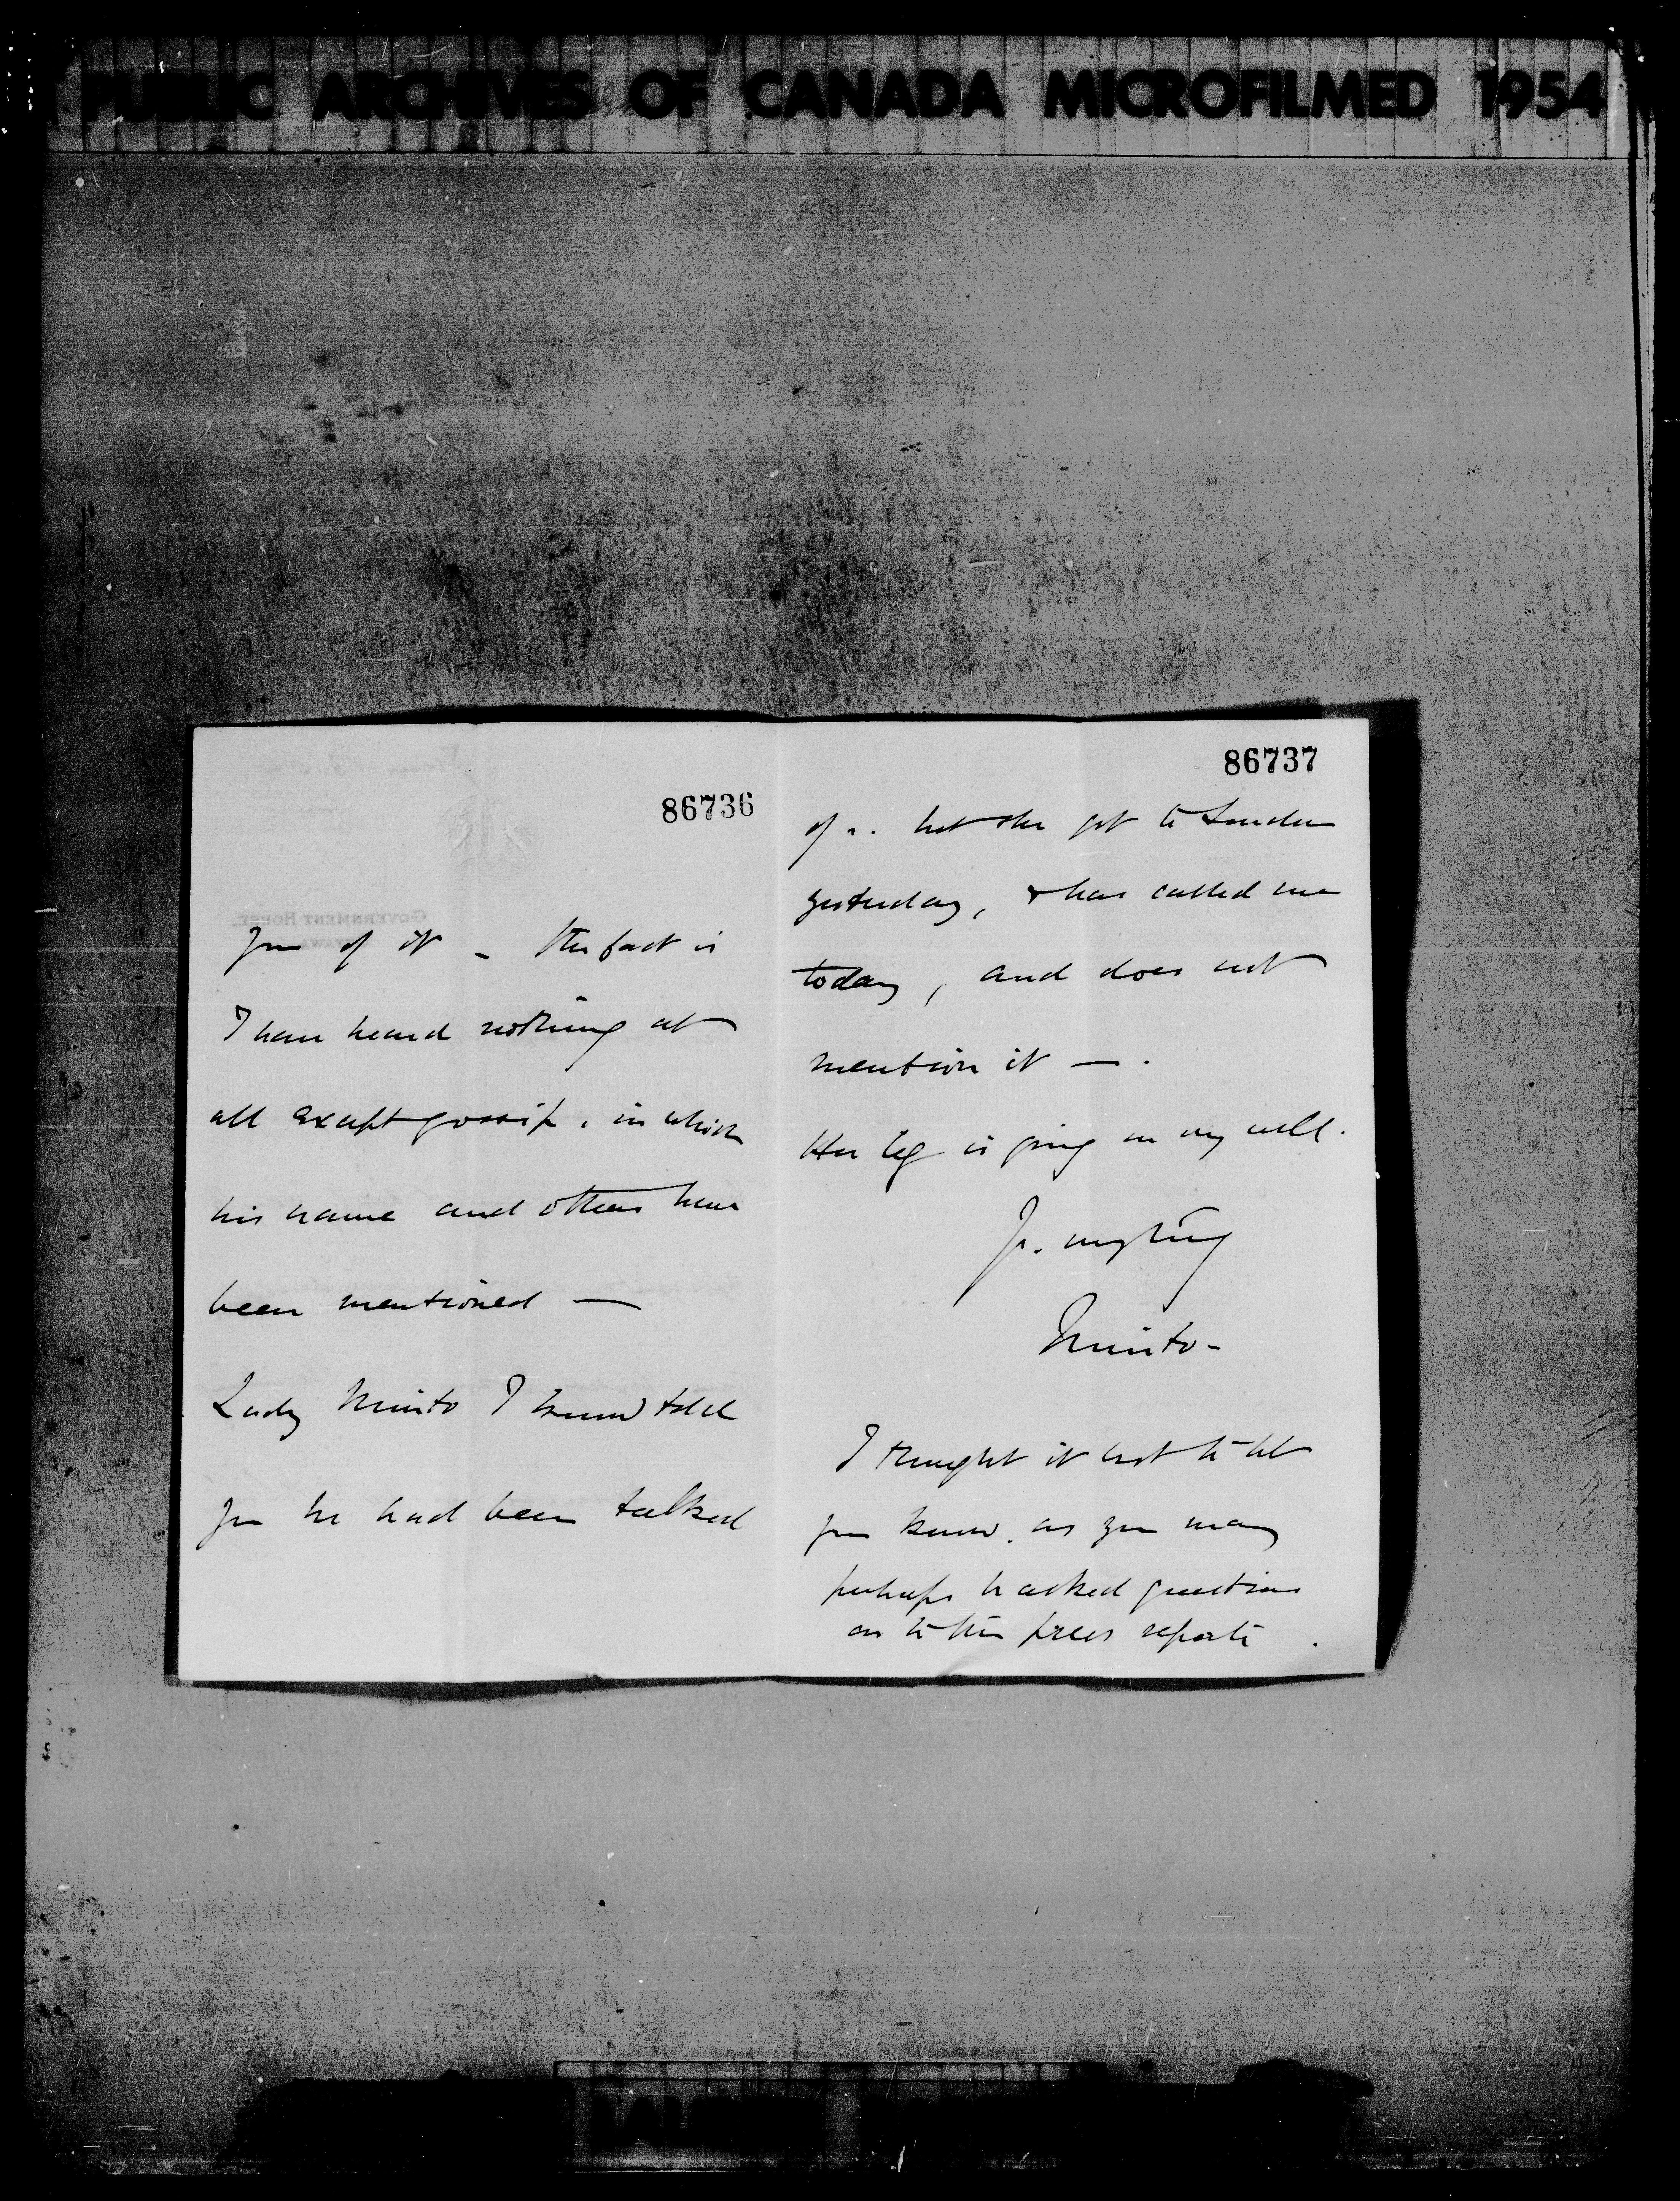 PUBLIC ARCHIVES OF CANADA MICROFILMED 1954
86736
you of it - the fact is
I have heard nothing at
all except gossip, in which
his name and others have
been mentioned —
Lady Minto I know told
you he had been talked
86737
of. but she got to London
yesterday, & has cabled me
today, and does not
mention it — .
Her leg is going on very well.
Yr. very truly
Minto-
I thought it best to let
you know. as you may
perhaps be asked questions
as to the press reports.
GOVERNMENT HOUSE.